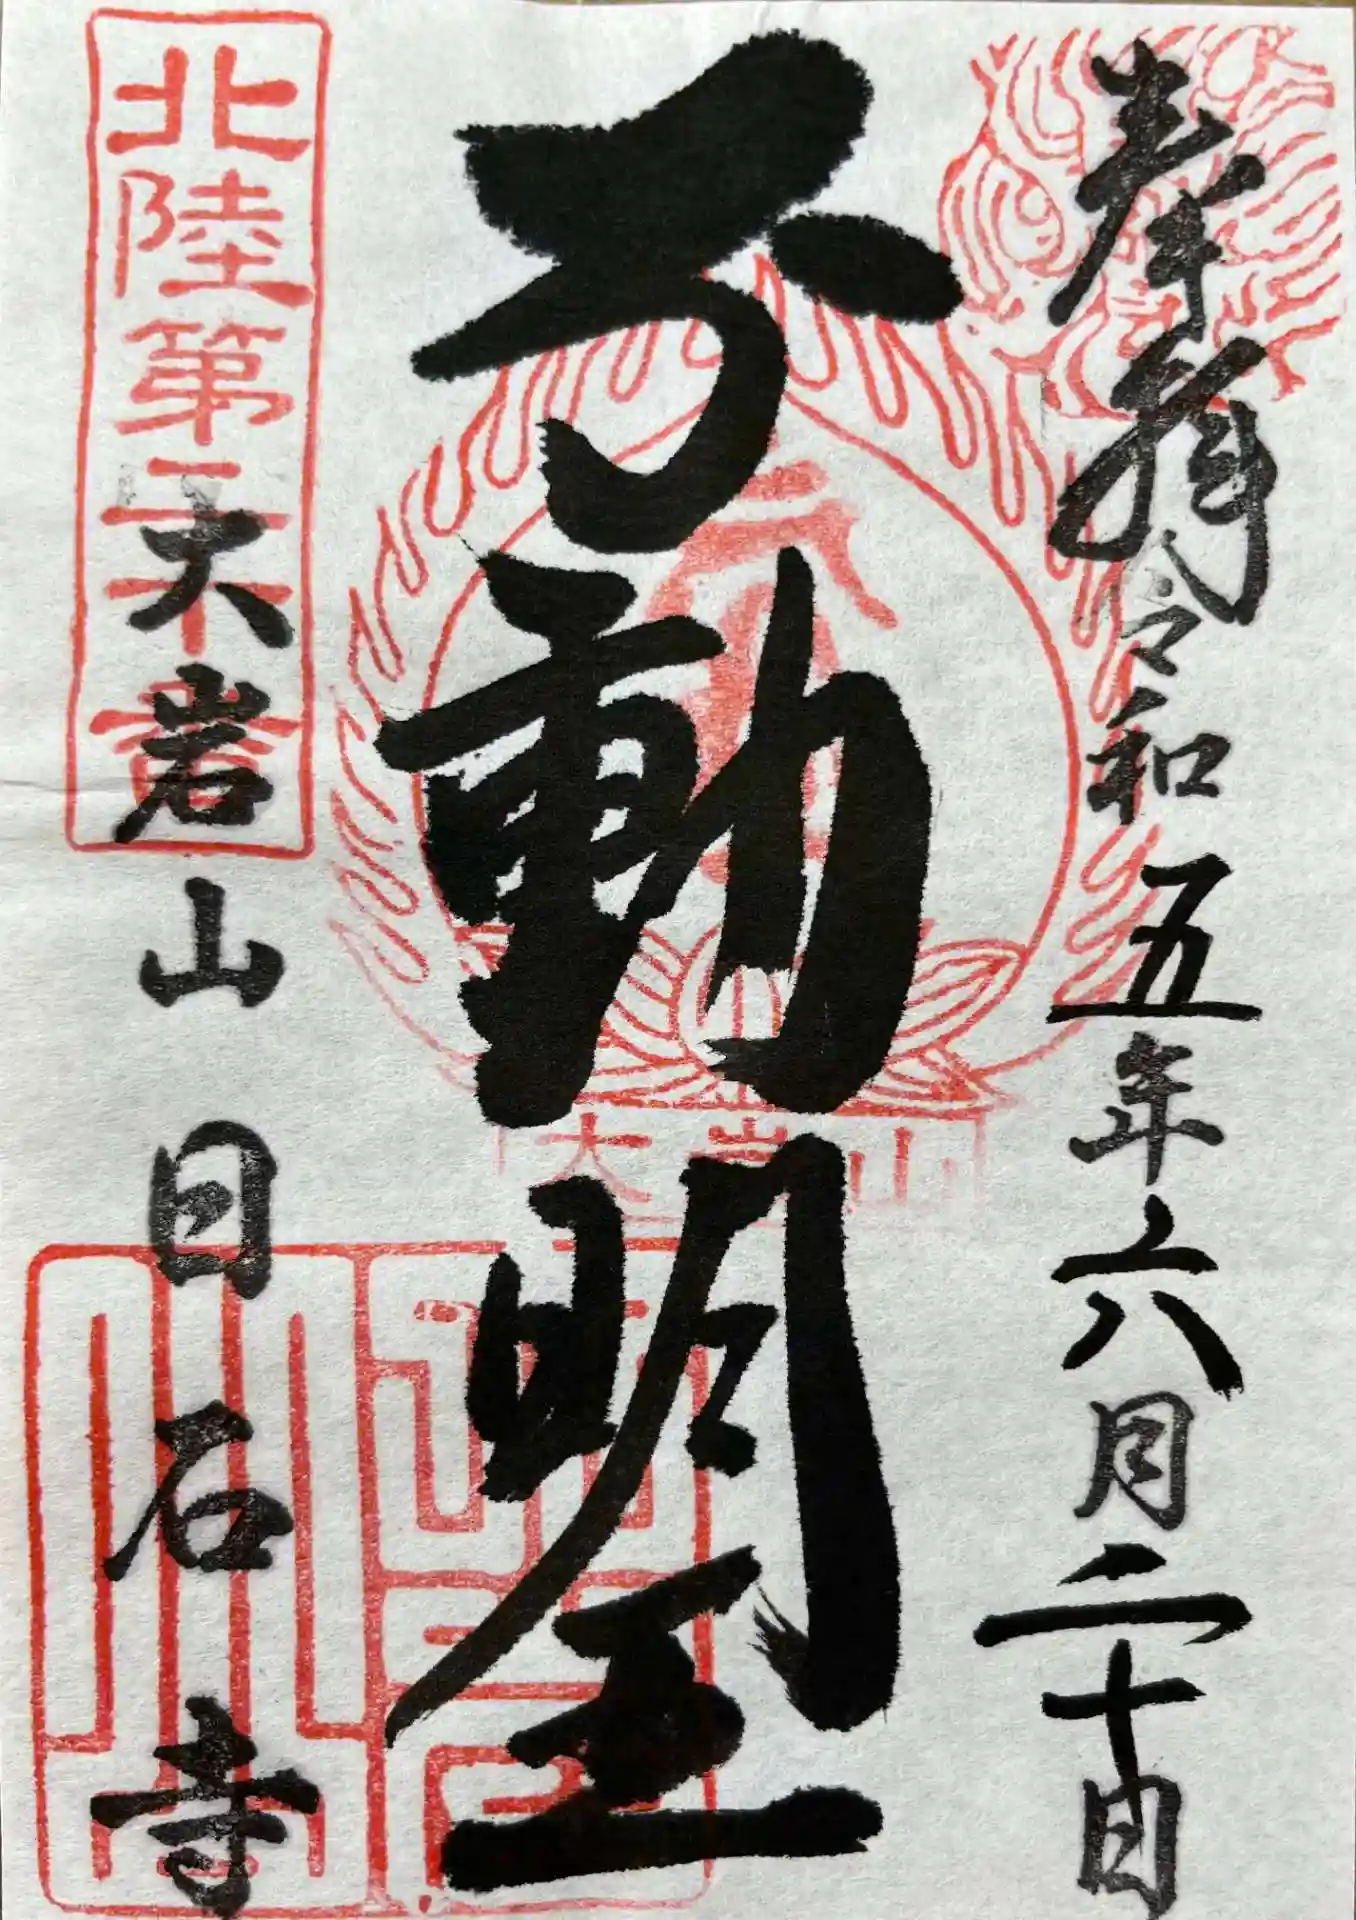 奉拝 令和五年六月二十日
不動明王
大岩山
北陸第三十番
大岩山日石寺